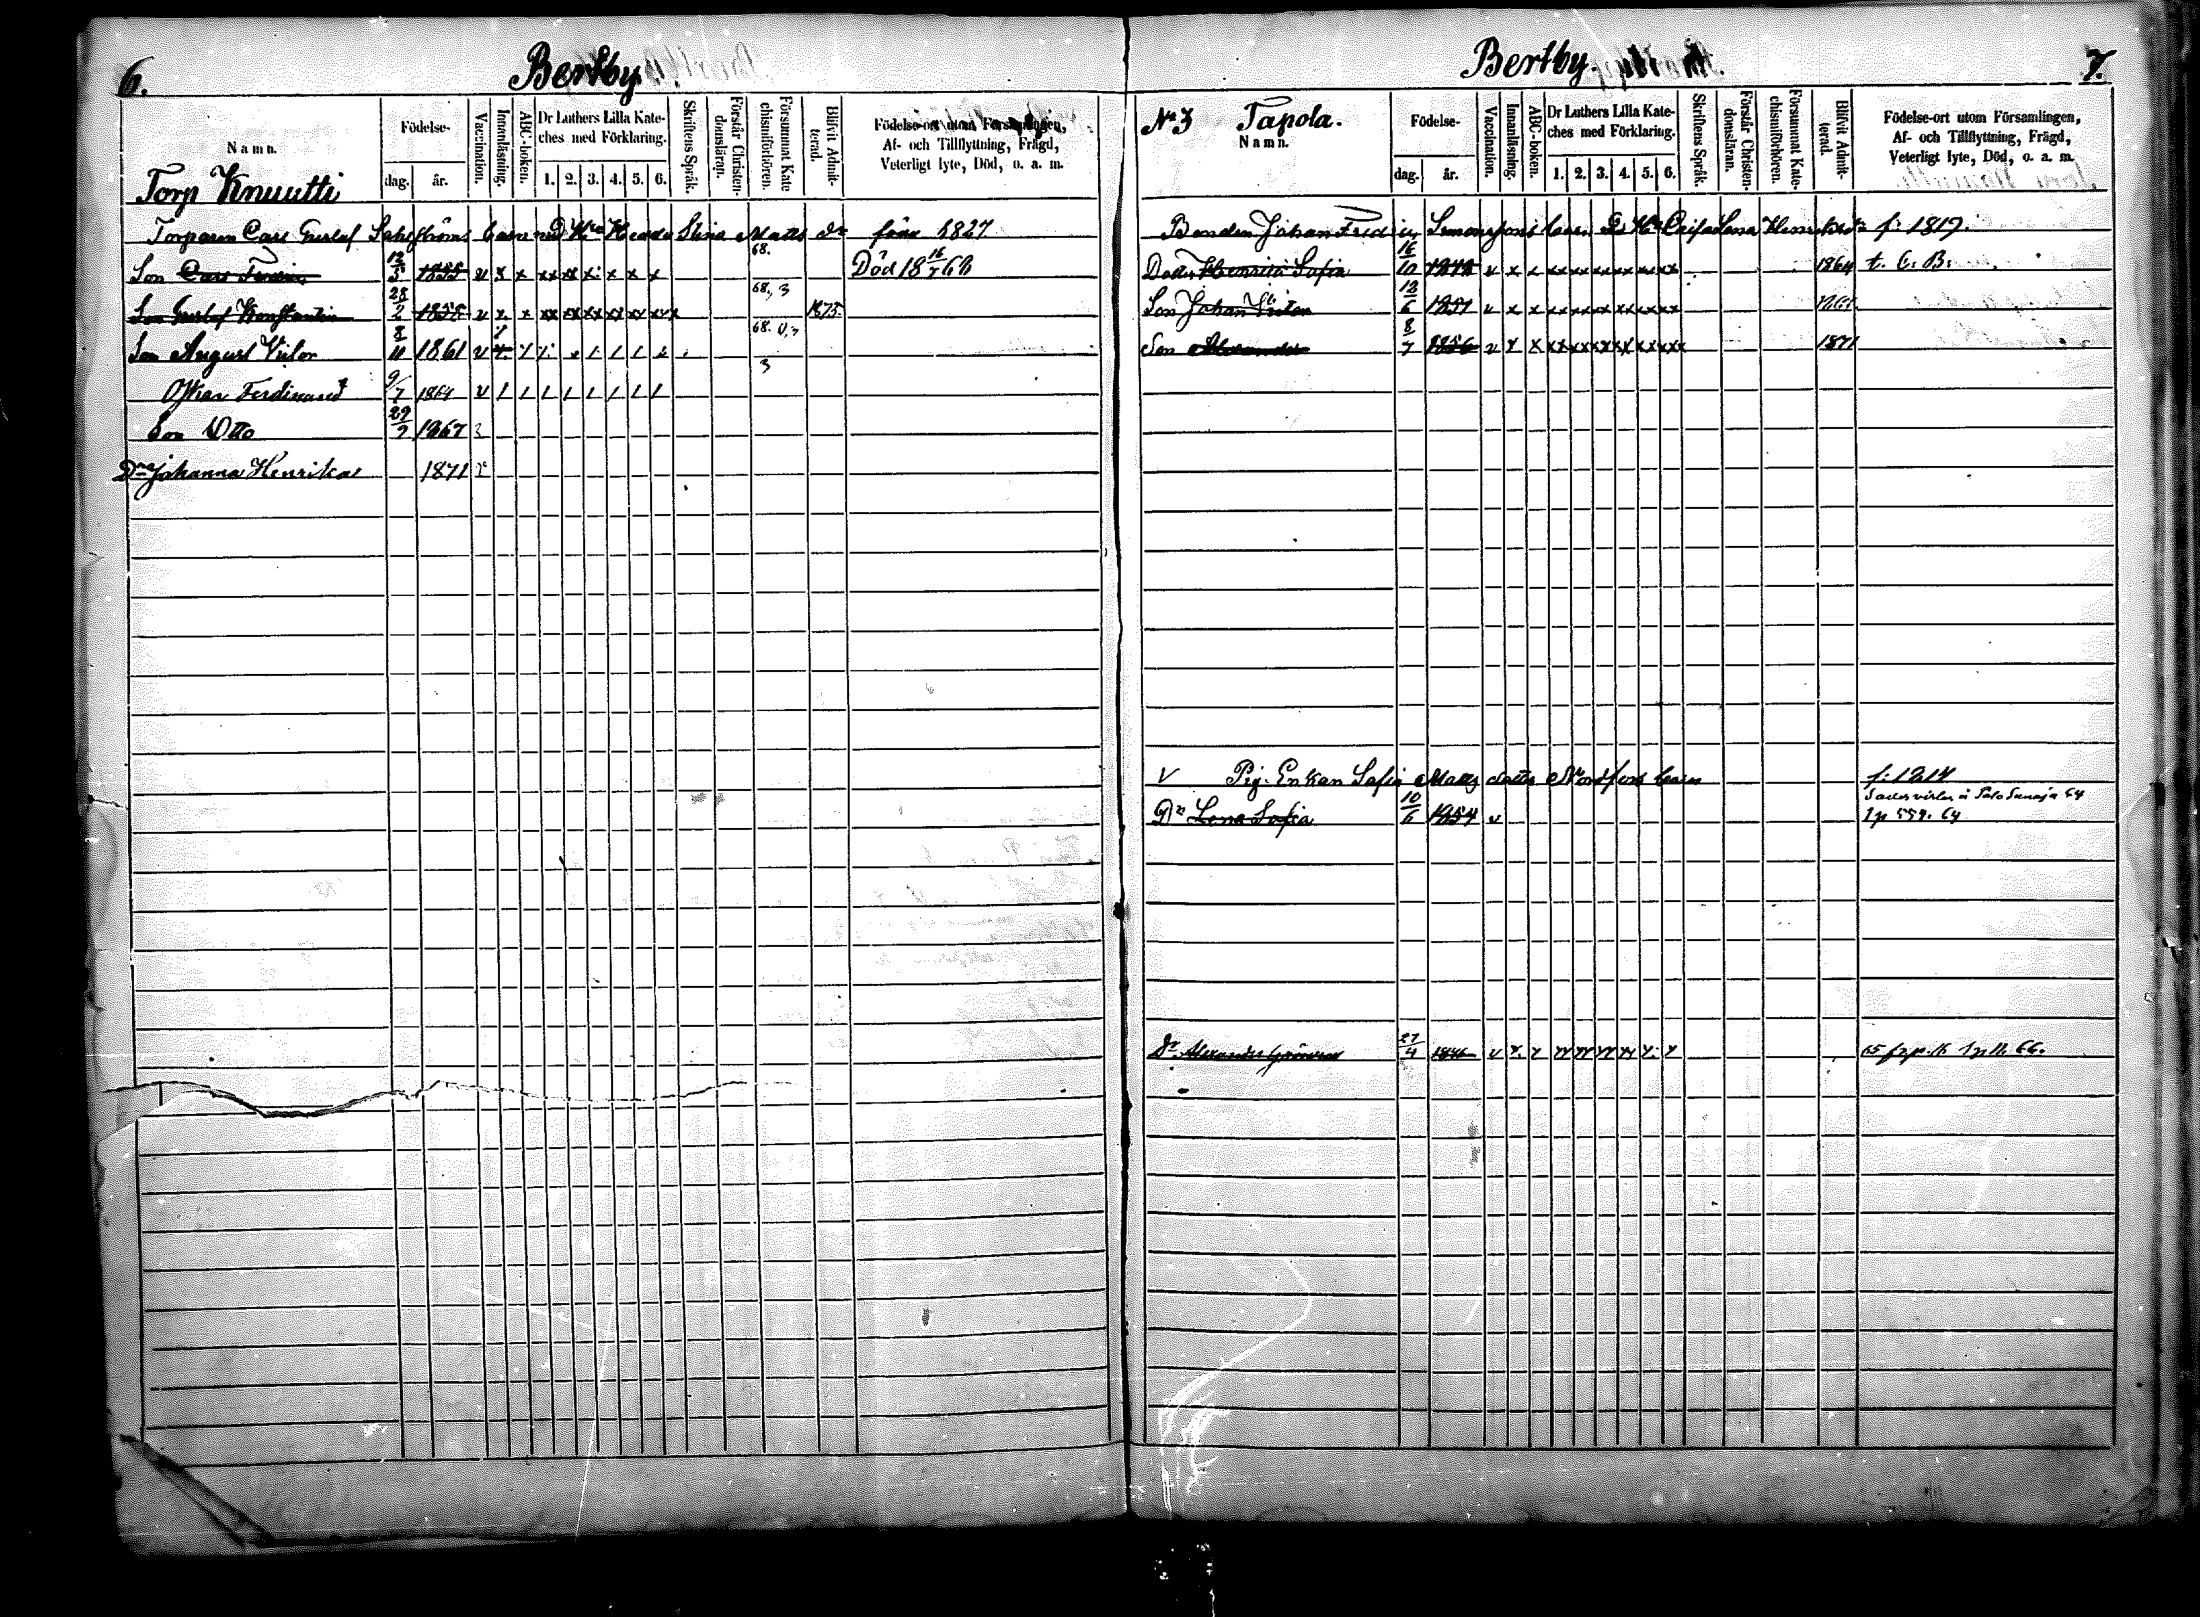 6.
Bertby.
Namn.
Torp Knuutti
Födelse-
dag.
år.
Vaccination.
Innanläsning.
ABC-boken.
Dr Luthers Lilla Kate-
ches med Förklaring.
1. 2. 3. 4. 5. 6.
Skriftens Språk.
Förstår Christen-
domsläran.
Försummat Kate
chismiförhören.
Blifvit Admit-
terad.
Födelse-ort utom Församlingen,
Af- och Tillflyttning, Frägd,
Veterligt lyte, Död, o. a. m.
Torparen Carl Gustaf Stina Matts dr 1827
68.
Son Carl 12/5 1855 v x x xx xx x x x x Död 18 16/7 68
68., 3
Son Gustaf Konstantin 28/2 1858 v x x xx xx xx xx xx xxx 1875.
68.
Son August Victor 8/11 1861 v
3
Oskar Ferdinand 9/7 1864 v
Son Otto 29/9 1867
Dr Johanna Henrika 1871 v
Bertby.
7.
No 3 Tapola.
Namn.
Födelse-
dag.
år.
Vaccination.
Innanläsning.
ABC-boken.
Dr Luthers Lilla Kate-
ches med Förklaring.
1. 2. 3. 4. 5. 6.
Skriftens Språk.
Förstår Christen-
domsläran.
Försummat Kate-
chismiförhören.
Blifvit Admit-
terad.
Födelse-ort utom Församlingen,
Af- och Tillflyttning, Frägd,
Veterligt lyte, Död, o. a. m.
Bonden Johan Fredric Simonssons barn Lena f. 1819.
Dotr Sofia 16/10 v x x xx xx xx xx xx xx 1864
Son Johan 12/6 1851 v x x xx xx xx xx xx xx
Son Alexander 8/7 1856 v x x xx xx xx xx xx xxx 1871
v Pig. Enkan Sofia Matts dotter Nordfors barn f. 1814
Dr Lena Sofia 10/6 1854 v
Dr 27/4 v x. x xx xx xx xx x. x 66.